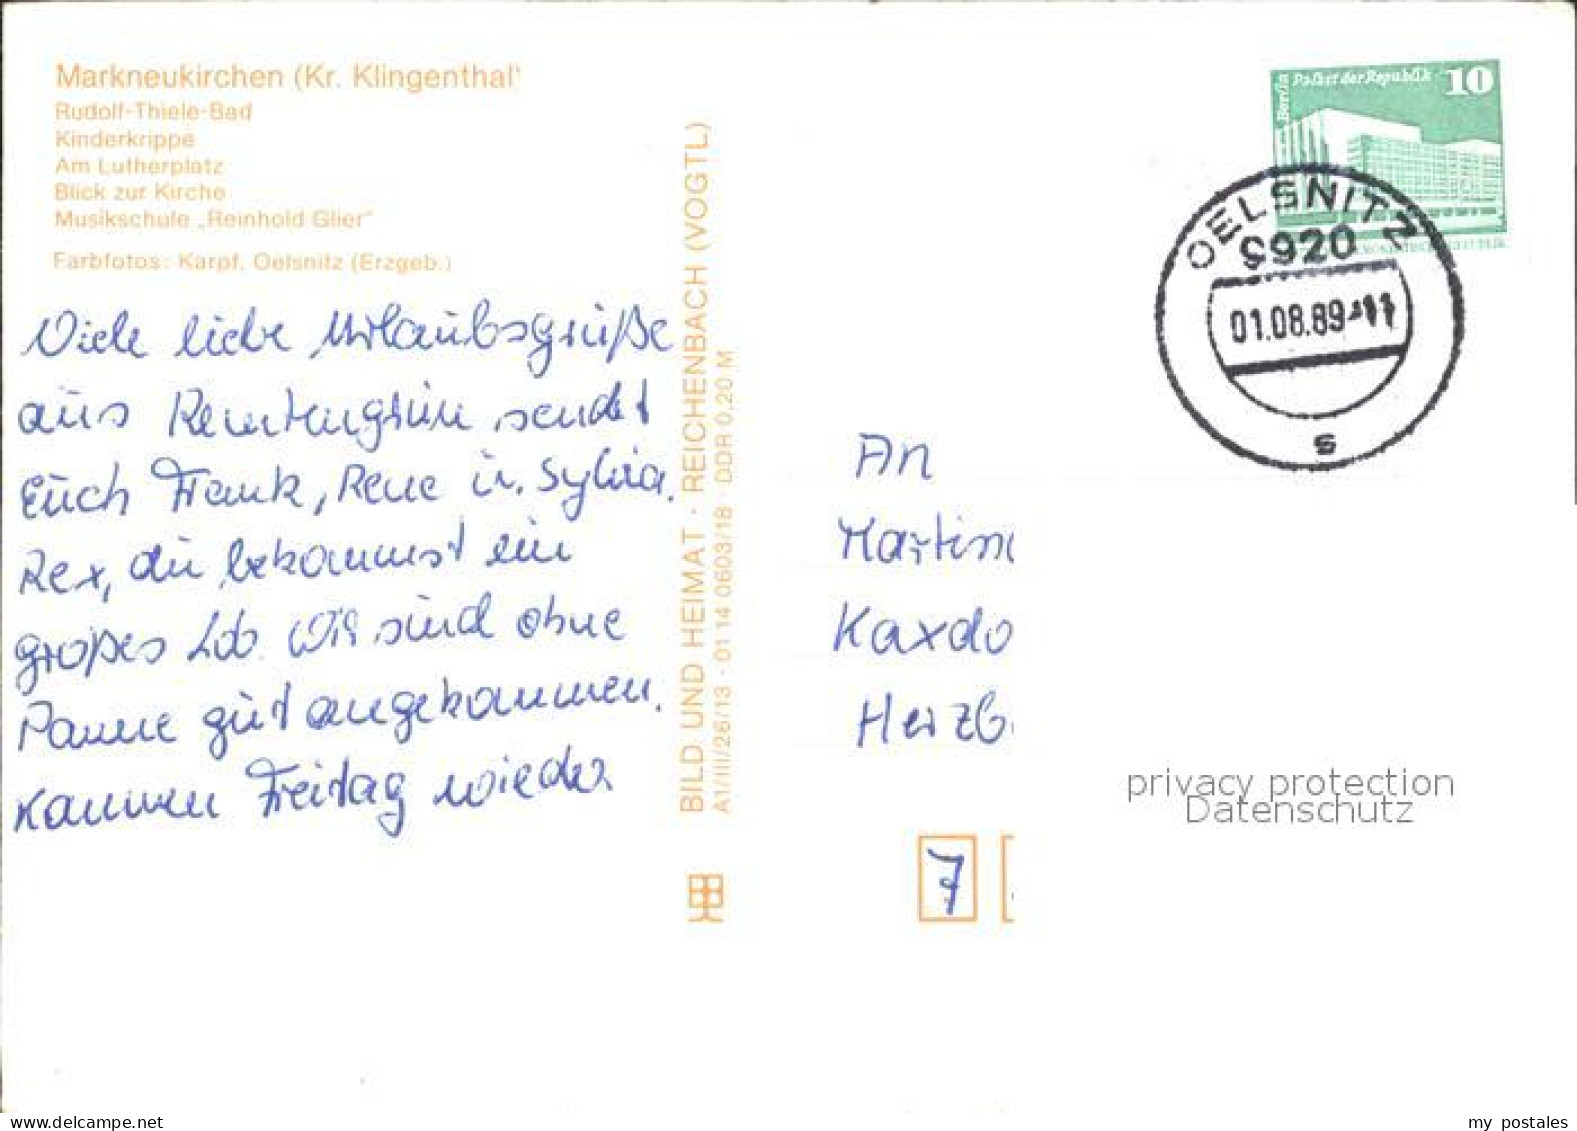 Markneukirchen (Kr. Klingenthal)
Rudolf-Thiele-Bad
Kinderkrippe
Am Lutherplatz
Blick zur Kirche
Musikschule „Reinhold Glier"
Farbfotos: Karpf, Oelsnitz (Erzgeb.)
Viele liebe Urlaubsgrüße
aus Remtengrün sendet
Euch Frank, Rene u. Sylvia.
Rex, du bekommst ein
großes Lob. Wir sind ohne
Panne gut angekommen.
Kommen Freitag wieder
BILD UND HEIMAT · REICHENBACH (VOGTL)
A1/III/26/13 · 01 14 0603/18 · DDR 0,20 M
Berlin Palast der Republik 10
OELSNITZ
9920
01.08.89-11
s
An
Martin
Kaxdo
Herzb
7
privacy protection
Datenschutz
www.delcampe.net
my postales